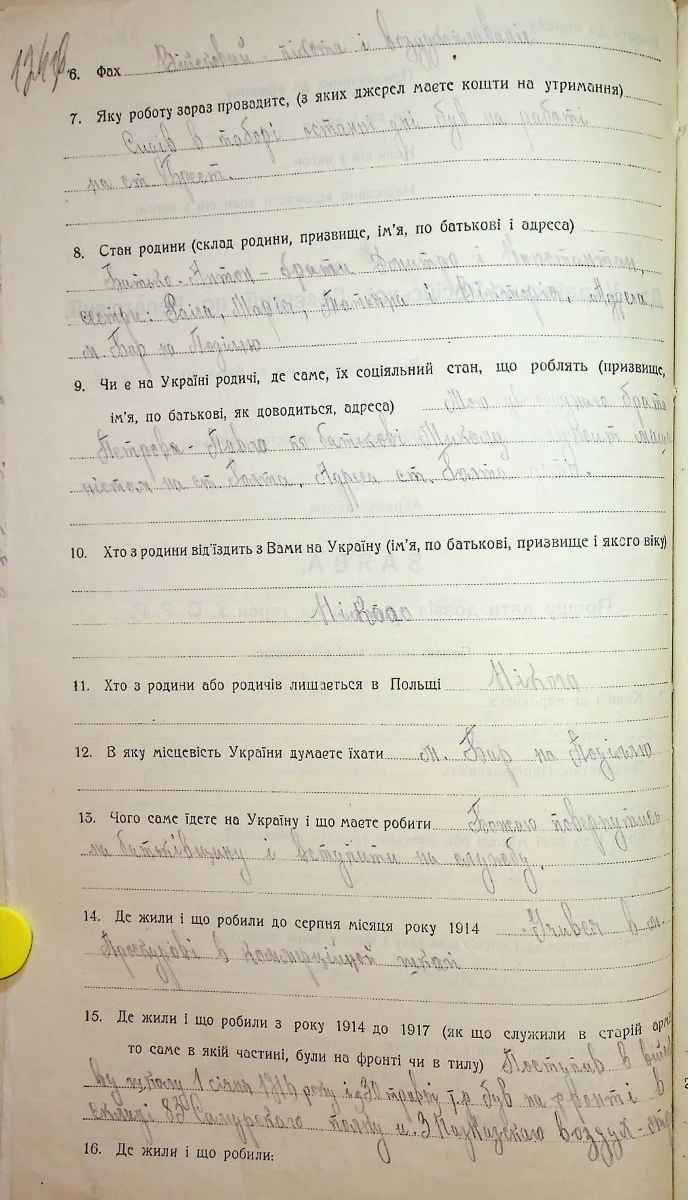 6. Фах Військовий - піхота і воздухоплаваніє
7. Яку роботу зараз провадите, (з яких джерел маєте кошти на утримання)
Сидів в таборі останні дні був на работі
на ст. Брест.
8. Стан родини (склад родини, призвище, ім'я, по батькові і адреса)
Батько - Антон - брати Дмитро і Константин,
сестри: Раїса, Марія, Татьяна і Вікторія, Адреса
м. Бар на Поділлю
9. Чи є на Україні родичі, де саме, їх соціяльний стан, що роблять (призвище,
ім'я, по батькові, як доводиться, адреса) Мого брата
Петрова - Павло по батькові
ністом на ст. Балта, Адреса ст. Балта
10. Хто з родини від'їздить з Вами на Україну (ім'я, по батькові, призвище і якого віку)
Ніхто
11. Хто з родини або родичів лишається в Польщі Нікого
12. В яку місцевість України думаєте їхати м. Бар на Поділлю
13. Чого саме їдете на Україну і що маєте робити Бажаю повернутись
на батьківщину і вступити на службу.
14. Де жили і що робили до серпня місяця року 1914 Учився в м.
Проскурові в коммерційной школі
15. Де жили і що робили з року 1914 до 1917 (як що служили в старій армі
то саме в якій частині, були на фронті чи в тилу) Поступив в війсь
ву школу 1 січня року і з 30 травня т.р. був на фронті в
складі 83 Самурского полку и 3 Кавказского воздух-
16. Де жили і що робили: